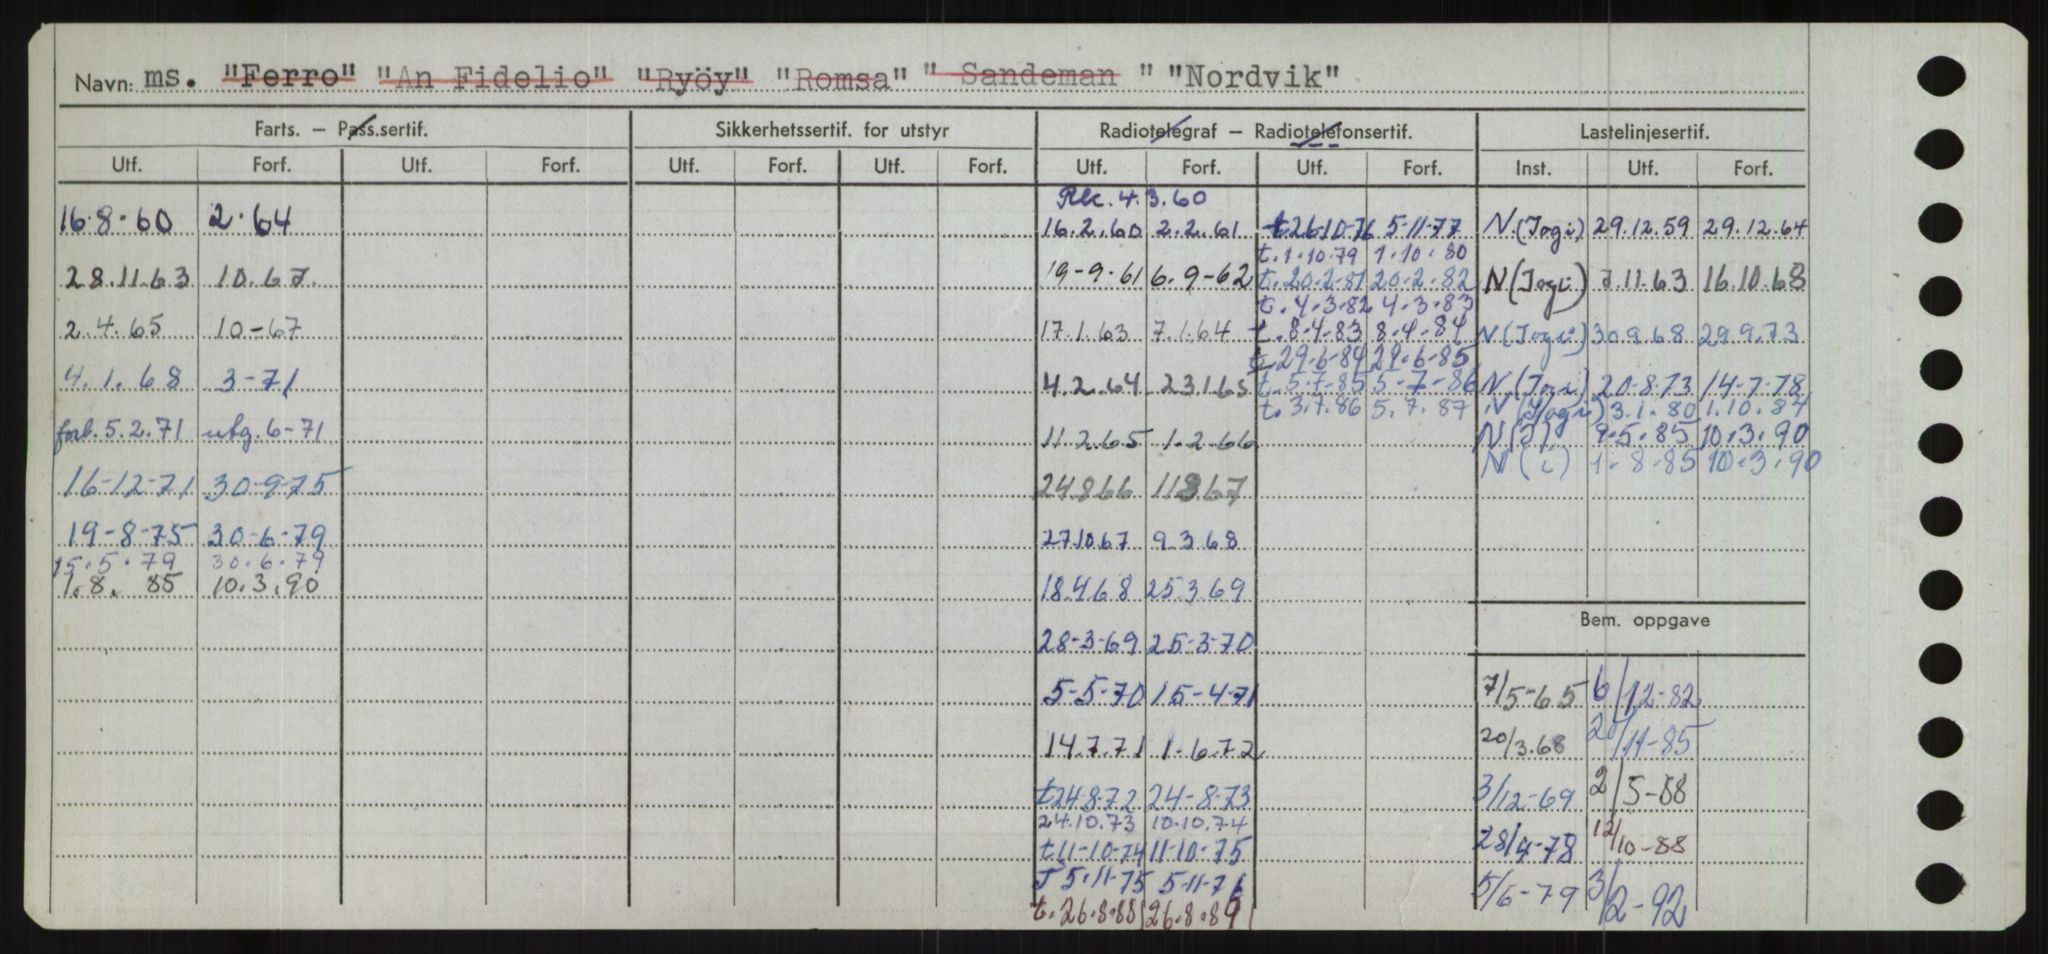 Navn: ms. "Ferro" "An Fidelio" "Ryöy" "Romsa" " Sandeman " "Nordvik"
Farts. – Pass.sertif. Sikkerhetssertif. for utstyr Radiotelegraf – Radiotelefonsertif. Lastelinjesertif.
Utf. Forf. Utf. Forf. Utf. Forf. Utf. Forf. Utf. Forf. Utf. Forf. Inst. Utf. Forf.
4.3.60
16.8.60 2.64 16.2.60 2.2.61 t.26-10-76 5-11-77 N (Jogi) 29.12.59 29.12.64
t.1.10.79 1.10.80
28.11.63 10.67. 19-9-61 6.9-62 t.20.2.81 20.2.82 N (Jogi) 7.11.63 16.10.68
t.4.3.82 4.3.83
2.4.65 10-67 17.1.63 7.1.64 t.8.4.83 8.4.84 N (Jogi) 30.9.68 29.9.73
t.29-6-84 29.6-85
4.1.68 3-71 4.2.64 23.1.65 t.5.7.85 5-7-86 N (Jogi) 20-8-73 14-7-78
t.3.7.86 5.7.87 N (Jogi) 3.1.80 1.10.84
forl. 5.2.71 utg. 6-71 11.2.65 1.2-66 N (J) 9.5.85 10.3.90
N (i) 1.8.85 10.3.90
16-12-71 30-9-75 24866 11367
19-8-75 30-6-79 27.10.67 9.3.68
15.5.79 30.6.79
1.8. 85 10.3.90 18.4.68 25.3.69
Bem. oppgave
28-3-69 25-3-70
5-5-70 15-4-71 7/5-65 6/12-82
14.7.71 1.6.72 20/3.68 20/11-85
t24-8-72 24-8-73 3/12-69 2/5-88
24.10.73 10.10.74
t11-10-74 11-10-75 28/4-78 12/10-88
T 5.11-75 5-11-76 5/6-79 3/2-92
t.26.8.88 26.8.89